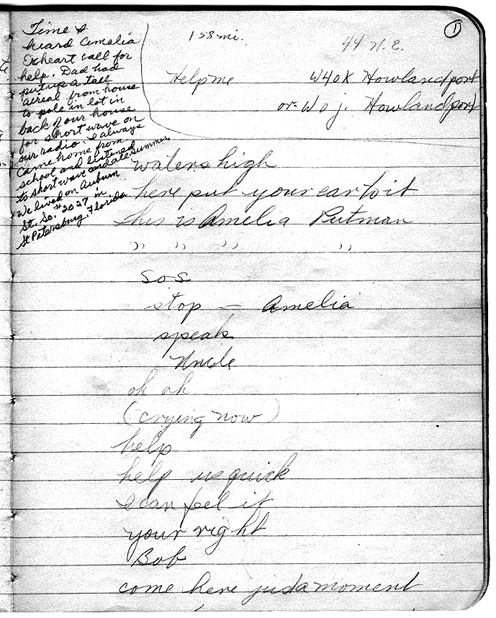 1
Time I
heard Amelia
Exheart call for
help. Dad had
put up a tall
aireal from house
to pole in lot in
back of our house
for short wave on
our radio. I always
came home from
school and listened
to short wave and late summer.
We lived on Auburn
St. So. #2027 in
St Petersburg, Florida
158 mi.
44 N. E.
Help me W40K Howland port
or W o j. Howland port
waters high
here put your ear to it
this is Amelia Putman
" " " "
S o S
stop — Amelia
speak
Uncle
oh oh
(crying now)
help
help us quick
I can feel it
your right
Bob
come here just a moment